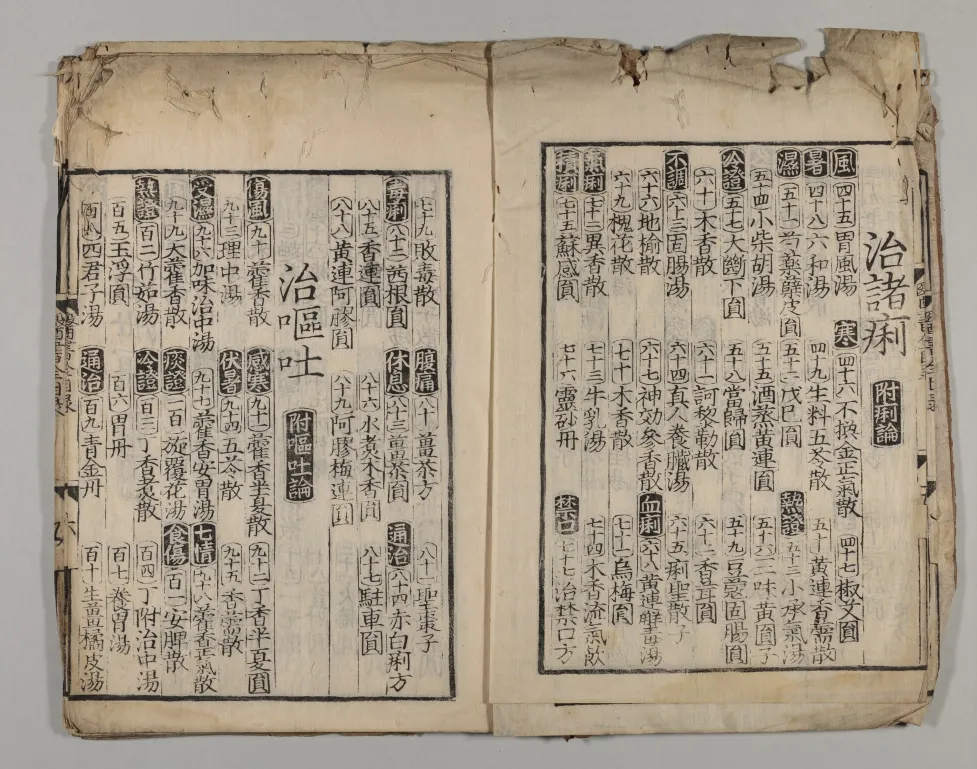 治諸痢 附痢論
風 四十五胃風湯 寒 四十六不換金正氣散 四十七椒艾圓
暑 四十八六和湯 四十九生料五苓散 五十黃連香薷散
濕 五十一芍藥蘗皮圓 五十二戊巳圓 熱證 五十三小承氣湯
五十四小柴胡湯 五十五酒蒸黃連圓 五十六三味黃圓子
冷證 五十七大斷下圓 五十八當歸圓 五十九豆蔻固腸圓
六十木香散 六十一訶黎勒散 六十二香茸圓
不調 六十三固腸湯 六十四眞人養臟湯 六十五痢聖散子
六十六地榆散 六十七神効參香散 血痢 六十八黃連解毒湯
六十九槐花散 七十木香散 七十一烏梅圓
氣痢 七十二異香散 七十三牛乳湯 七十四木香流氣飲
積痢 七十五蘇感圓 七十六靈砂丹 禁口 七十七治禁口方
七十九敗毒散 腹痛 八十薑茶方 八十一聖棗子
毒痢 八十二茜根圓 休息 八十三薑茶圓 通治 八十四赤白痢方
八十五香連圓 八十六水煮木香圓 八十七駐車圓
八十八黃連阿膠圓 八十九阿膠梅連圓
治嘔吐 附嘔吐論
傷風 九十藿香散 感寒 九十一藿香半夏散 九十二丁香半夏圓
九十三理中湯 伏暑 九十四五苓散 九十五香薷散
受濕 九十六加味治中湯 九十七藿香安胃湯 七情 九十八藿香正氣散
九十九大藿香散 痰證 一百旋覆花湯 食傷 百一安脾散
熱證 百二竹茹湯 冷證 百三丁香煮散 百四丁附治中湯
百五玉浮圓 百六胃丹 百七養胃湯
百八四君子湯 通治 百九青金丹 百十生薑橘皮湯